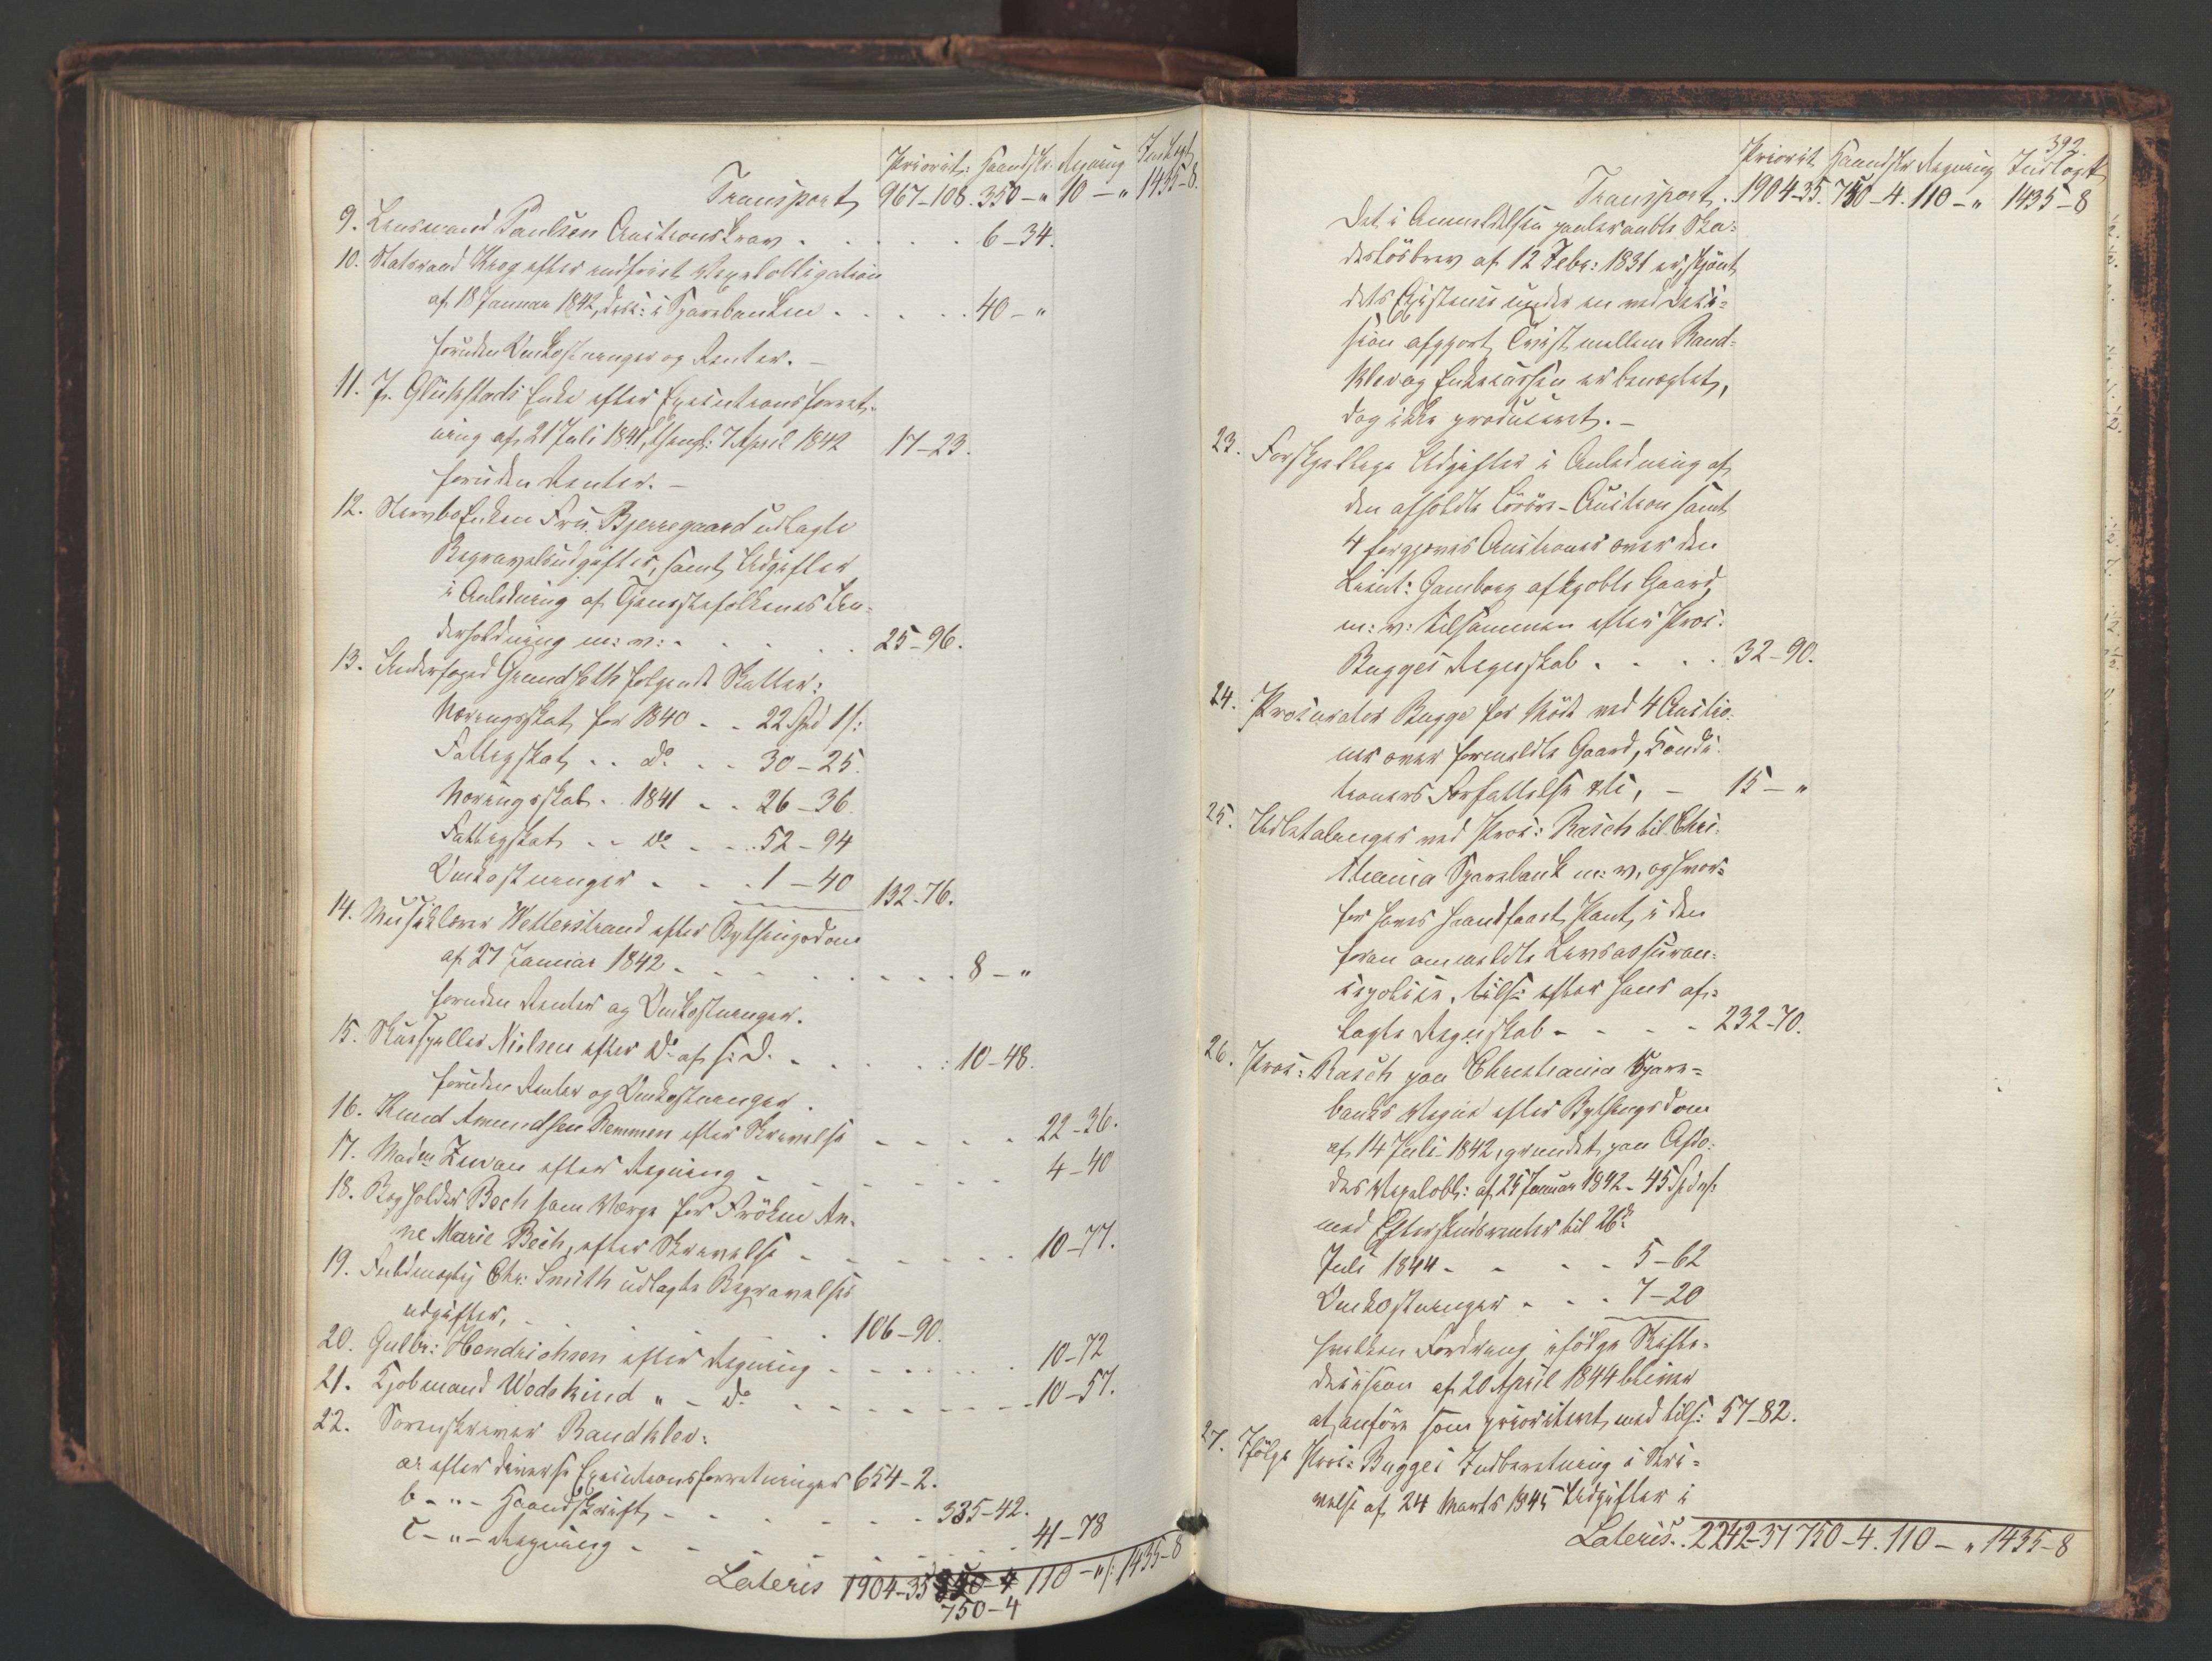 Priorit: Haandskr. Regning Indlagt
Transport 967-108. 350 - " 10 - " 1435-8.
9. Lensmand Paulsen Auctionskrav . . . . . 6-34.
10. Statsraad Krog efter indfriet Vexelobligation
af 18 Januar 1842, disc: i Sparebanken . . . . . 40 - "
foruden Omkostninger og Renter. -
11. J. Glückstads Enke efter Executionsforret-
ning af 21 Juli 1841, thengl: 7 April 1842 17-23.
foruden Renter. -
12. Stervboenken Fru Bjerregaard udlagte
Begravelsesudgifter, samt Udgifter
i Anledning af Tjenestefolkenes Un-
derholdning m: v: - . . . . 25-96.
13. Underfoged Grundseth følgende Skatter:
Næringsskat for 1840 - - 22 Spd 1 s:
Fattigskat . . do . - 30-25.
Næringsskat . . 1841 - - 26-36.
Fattigskat - - do - - . 52-94
Omkostninger - . . . 1-40 132-76.
14. Musiklærer Wetterstrand efter Bythingsdom
af 27 Januar 1842 - - - - - - - - . 8 - "
foruden Renter og Omkostninger.
15. Skuespiller Nielsen efter do af s: D. - . . . : 10-48.
foruden Renter og Omkostninger.
16. Knud Amundsen Remmen efter Skrivelse - - - - . 22-36.
17. Madm Zwan efter Regning - - - - - - - 4-40
18. Bogholder Bech som Værge for Fröken An-
ne Marie Bech, efter Skrivelse - - - - - - 10-77.
19. Fuldmægtig Chr: Smith udlagte Begravelses
udgifter, - - - - . 106-90.
20. Gulbr: Hendrichsen efter Regning - - - - - . 10-72
21. Kjøbmand Wedekind " - do . . - - - - - 10-57.
22. Sorenskriver Randklev:
a. efter diverse Executionsforretninger 654-2.
b - " - Haandskrift, - - - - - - 335-42.
c - " - Regning - - - - - - - . 41-78
Lateris 1904-35 110 - " /: 1435-8
750-4
392
Priorit. Haandskr. Regning Indlagt
Transport . 1904-35. 750-4. 110 - " 1435-8
Det i Anmeldelsen paaberaabte Ska-
deslösbrev af 12 Febr: 1831 er, skjönt
dets Existence under en ved Deci-
sion afgjort Tvist mellem Rand-
klev og Enkecassen er benegtet,
dog ikke produceret. -
23. Forskjellige Udgifter i Anledning af
den afholdte Lösöre-Auction samt
4 forgjæves Auctioner over den
Lieut: Gamborg afkjøbte Gaard,
m: v: tilsammen efter Proc:
Bugges Regnskab . - . . 32-90.
24. Procurator Bugge for Möde ved 4 Auctio-
ner over formeldte Gaard, Condi-
tioners Forfattelse etc, - 15 - "
25. Udbetalinger ved Proc: Rasch til Chri-
stiania Sparebank m: v, og hvor-
for haves haandfaaet Pant i den
foran ommeldte Livsassuran-
cepolice, tils: efter hans af-
lagte Regnskab - - - - 232-70.
26. Proc: Rasch paa Christiania Spare-
banks Vegne efter Bythingsdom
af 14 Juli 1842, grundet paa Afdö-
des Vexelobl: af 25 Januar 1842 - 45 Spd s:
med Efterskudsrenter til 26de
Juli 1844 - - - - 5-62
Omkostninger - - . 7-20
hvilken Fordring ifölge Skifte-
decision af 20 April 1844 bliver
at anföre som prioriteret med tils: 57-82.
27. Ifölge Proc: Bugges Indberetning i Skri-
velse af 24 Marts 1845 Udgifter i
Lateris . 2242-37 750-4. 110 - " 1435-8